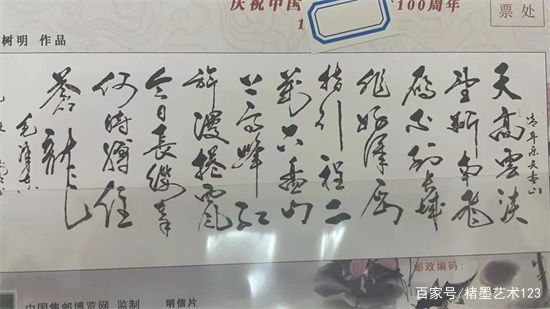 庆祝中国 100周年
1
票处
树明 作品
清平乐六盘山
天高雲淡
望断南飛
雁不到長城
非好漢屈
指行程二
萬六盘山
上高峰红
旗漫捲風
今日長缨在
何時缚住
蒼龍
毛泽东
邮政编码：
中国集邮博览网 监制 明信片
百家号/楮墨艺术123